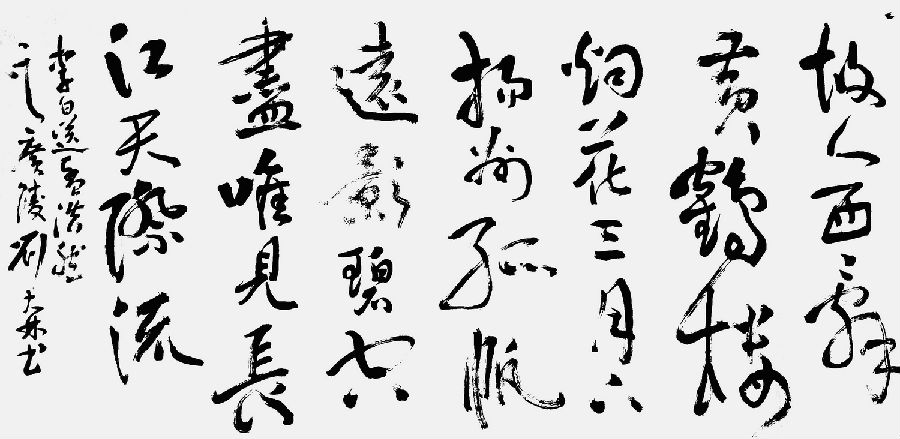 故人西辭
黃鶴樓
烟花三月下
揚州孤帆
遠影碧空
盡唯見長
江天際流
李白送孟浩然
之廣陵 刘 书